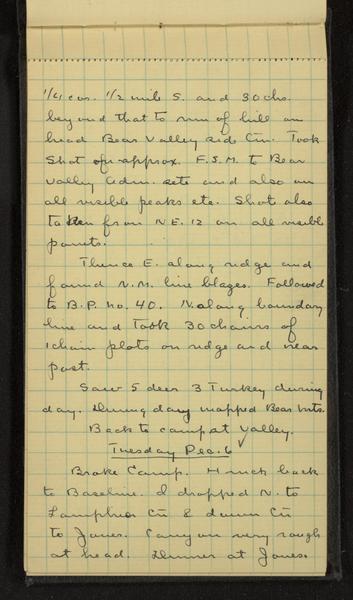 1/4 cor. 1/2 mile S. and 30 chs.
beyond that to rim of hill on
head Bear Valley side Cn. Took
Shot of approx. F.S.M. to Bear
Valley Adm. site and also on
all visible peaks etc. Shots also
taken from N.E. 12 on all visible
points.
Thence E. along ridge and
found N.M. line blazes. Followed
to B.P. no. 40. N. along boundary
line and took 30 chains of
1 chain plots on ridge and near
post.
Saw 5 deer 3 Turkey during
day. During day mapped Bear Mts.
Back to camp at Valley.
Tuesday Dec. 6
Broke Camp. H back
to Baseline. I dropped N. to
Lamphier Cn & down Cn
to Jones. Canyon very rough
at head. Dinner at Jones.